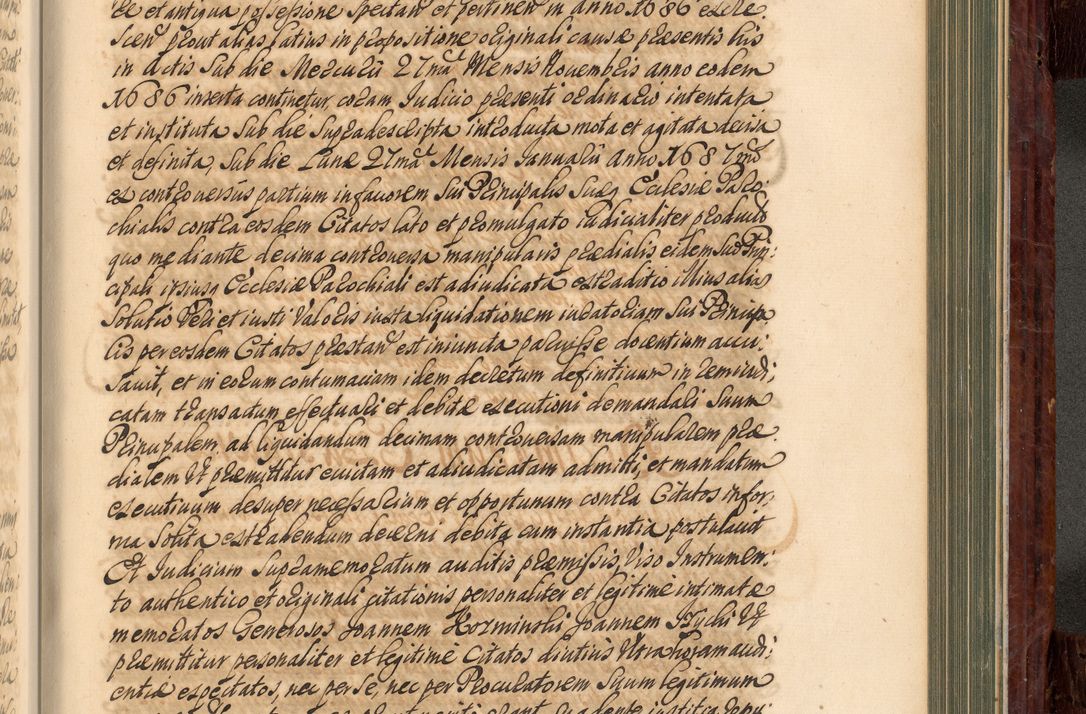 re et antiqua possessione spectan et pertinen in anno 1686 exere
scen prout alias latius in propositione originali causæ præsentis his
in actis sub die Mercurii 27ma Mensis Novembris anno eodem
1686 inserta continetur, coram Judicio præsenti ordinario intentata
et instituta sub die supradescripta introducta mota et agitata decisa
et definita, sub die Lunæ 27ma Mensis Januarii anno 1687mo
ex controversiis partium in favorem sui Principalis suæq Ecclesiæ Paro:
chialis contra eosdem Citatos lato et promulgato iudicialiter producto
quo mediante decima controversa manipularis prædialis eidem suo Prin:
cipali ipsiusq Ecclesiæ Parochiali est adiudicata extraditio illius alias
solutio veri et iusti valoris iuxta liquidationem iuratoriam sui Principa
lis per eosdem Citatos præstan est iniuncta paruisse docentium accu:
savit, et in eorum contumaciam idem decretum definitivum in rem iudi:
catam transactum effectuari et debitæ executioni demandari suum
Principalem, ad liquidandum decimam controversam manipularem præ
dialem ut præmittitur evictam et adiudicatam admitti, et mandatum
executivum desuper necessarium et opportunum contra Citatos in for:
ma solita extrahendum decerni debita cum instantia postulavit
Et Judicium supramemoratum auditis præmissis, viso Instrumen:
to authentico et originali citationis personaliter et legitime intimatæ
memoratos Generosos Joannem Korzminski Joannem Psychi ut
præmittitur personaliter et legitime Citatos diutius ultra horam audi:
entiæ expectatos, nec per se, nec per Procuratorem suum legitimum